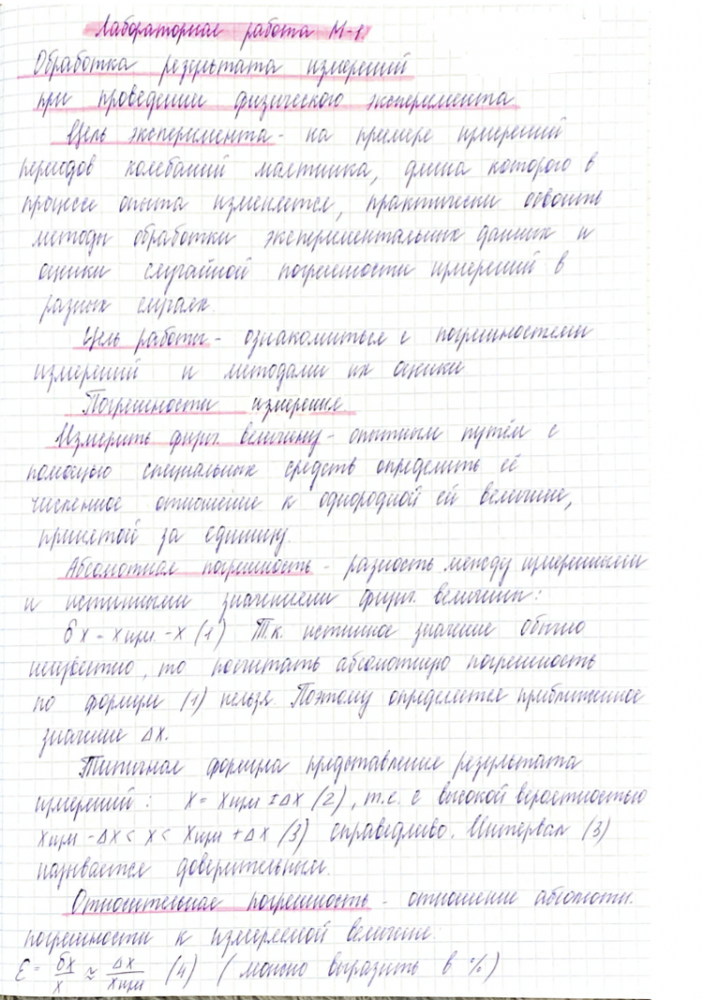 Лабораторная работа М-1
Обработка результата измерений
при проведении физического эксперимента
Цель эксперимента - на примере измерений
периодов колебаний маятника, длина которого в
процессе опыта изменяется, практически освоить
методы обработки экспериментальных данных и
оценки случайной погрешности измерений в
разных случаях.
Цель работы - ознакомиться с погрешностями
измерений и методами их оценки
Погрешности измерения.
Измерить физич. величину - опытным путём с
помощью специальных средств определить её
численное отношение к однородной ей величине,
принятой за единицу.
Абсолютная погрешность - разность между измеренным
и истинными значениями физич. величины:
δx = x изм. - x (1) Т.к. истинное значение обычно
неизвестно, то посчитать абсолютную погрешность
по формуле (1) нельзя. Поэтому определяется приближенное
значение Δx.
Типичная формула представления результата
измерений: x = x изм ± Δx (2), т.е. с высокой вероятностью
x изм - Δx < x < x изм + Δx (3) справедливо. Интервал (3)
называется доверительным.
Относительная погрешность - отношение абсолютн.
погрешности к измеряемой величине:
ε = δx/x ≈ Δx/x изм (4) (можно выразить в %)